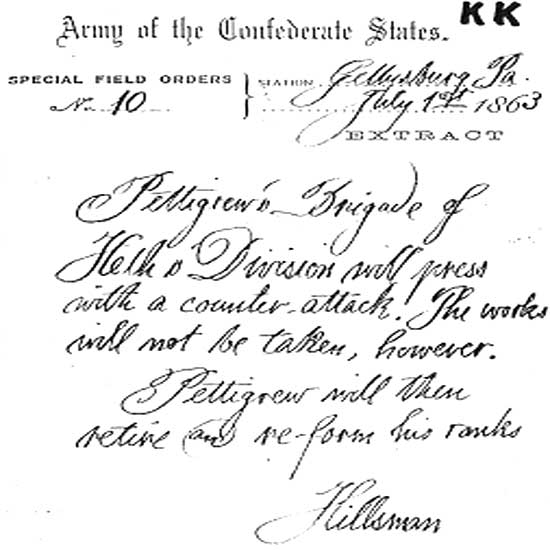 KK
Army of the Confederate States.
SPECIAL FIELD ORDERS
No. 10
STATION Gettysburg, Pa.
July 1st 1863
EXTRACT
Pettigrew's Brigade of
Heth's Division will press
with a counter-attack! The works
will not be taken, however.
Pettigrew will then
retire and re-form his ranks
Hillsman